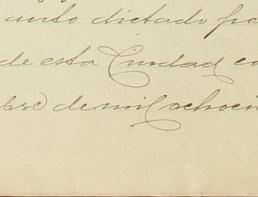 auto dictado po
de esta Ciudad co
bre de mil ochocien